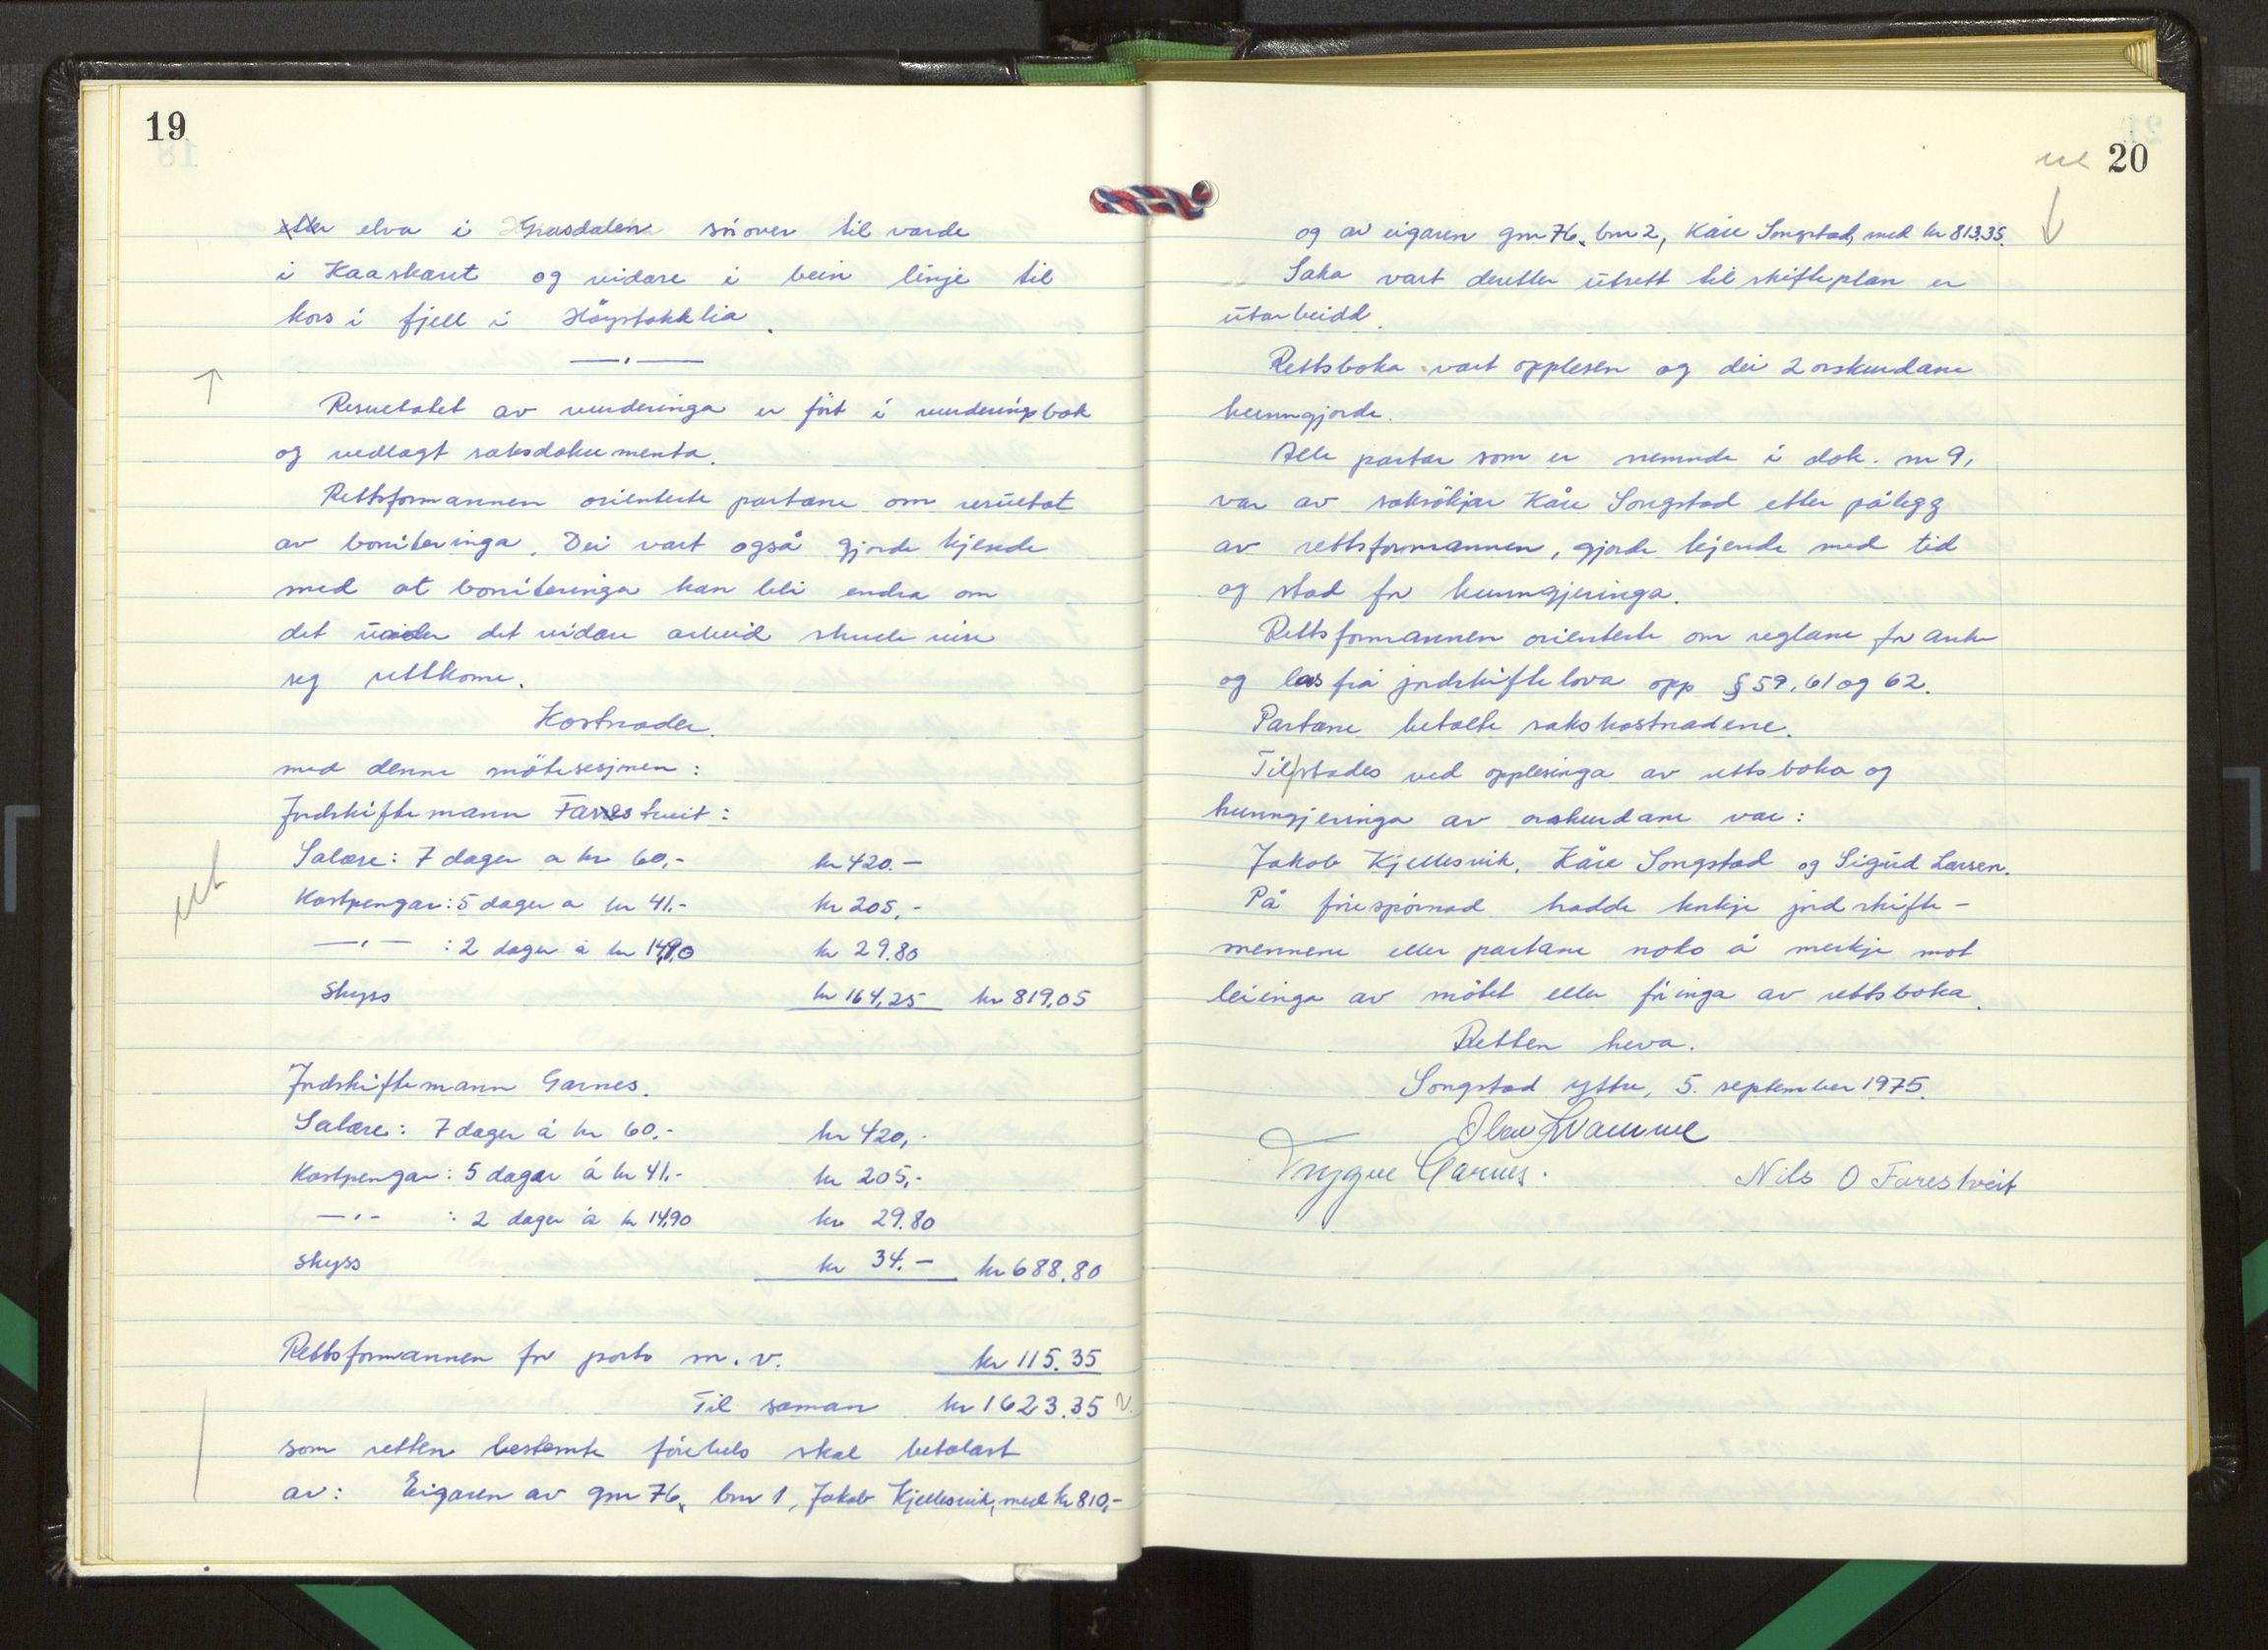 19
etter elva i Grasdalen sørover til varde
i Kaaskaret og vidare i bein linje til
kors i fjell i Högstokklia.
Resultatet av vurderinga er ført i vurderingsbok
og vedlagt saksdokumenta.
Rettsformannen orienterte partane om resultat
av boniteringa. Dei vart også gjorde kjende
med at boniteringa kan bli endra om
det under det vidare arbeid skulle vise
seg rettkome.
Kostnader.
med denne møtesesjonen:
Jordskiftemann Farestveit:
Salære: 7 dager a kr 60,- kr 420.-
Kostpengar: 5 dager a kr 41,- kr 205,-
—"— : 2 dager á kr 14,90 kr 29.80
Skyss kr 164,25 kr 819,05
Jordskiftemann Garnes.
Salære: 7 dager á kr 60.- kr 420,-
Kostpengar: 5 dagar á kr 41,- kr 205,-
—"— : 2 dager á kr 14,90 kr 29.80
Skyss kr 34.- kr 688.80
Rettsformannen for porto m.v. kr 115.35
Til saman kr 1623.35
som retten bestemte førebels skal betalast
av: Eigaren av gnr 76, bnr 1, Jakob Kjellesvik, med kr 810,-
20
og av eigaren gnr 76, bnr 2, Kåre Songstad, med kr 813.35.
Saka vart deretter utsett til skifteplan er
utarbeidd.
Rettsboka vart opplesen og dei 2 orskurdane
kunngjorde.
Alle partar som er nemnde i dok. nr 9,
var av saksøkjar Kåre Songstad etter pålegg
av rettsformannen, gjorde kjende med tid
og stad for kunngjeringa.
Rettsformannen orienterte om reglane for anke
og las frå jordskiftelova opp § 59, 61 og 62.
Partane betalte sakskostnadene.
Tilstades ved opplesinga av rettsboka og
kunngjeringa av orskurdane var:
Jakob Kjellesvik, Kåre Songstad og Sigurd Larsen.
På førespørnad hadde korkje jordskifte-
mennene eller partane noko å merkje mot
leiinga av møtet eller føringa av rettsboka.
Retten heva.
Songstad yttre, 5. september 1975.
Olav Kvamme
Trygve Garnes.
Nils O Farestveit